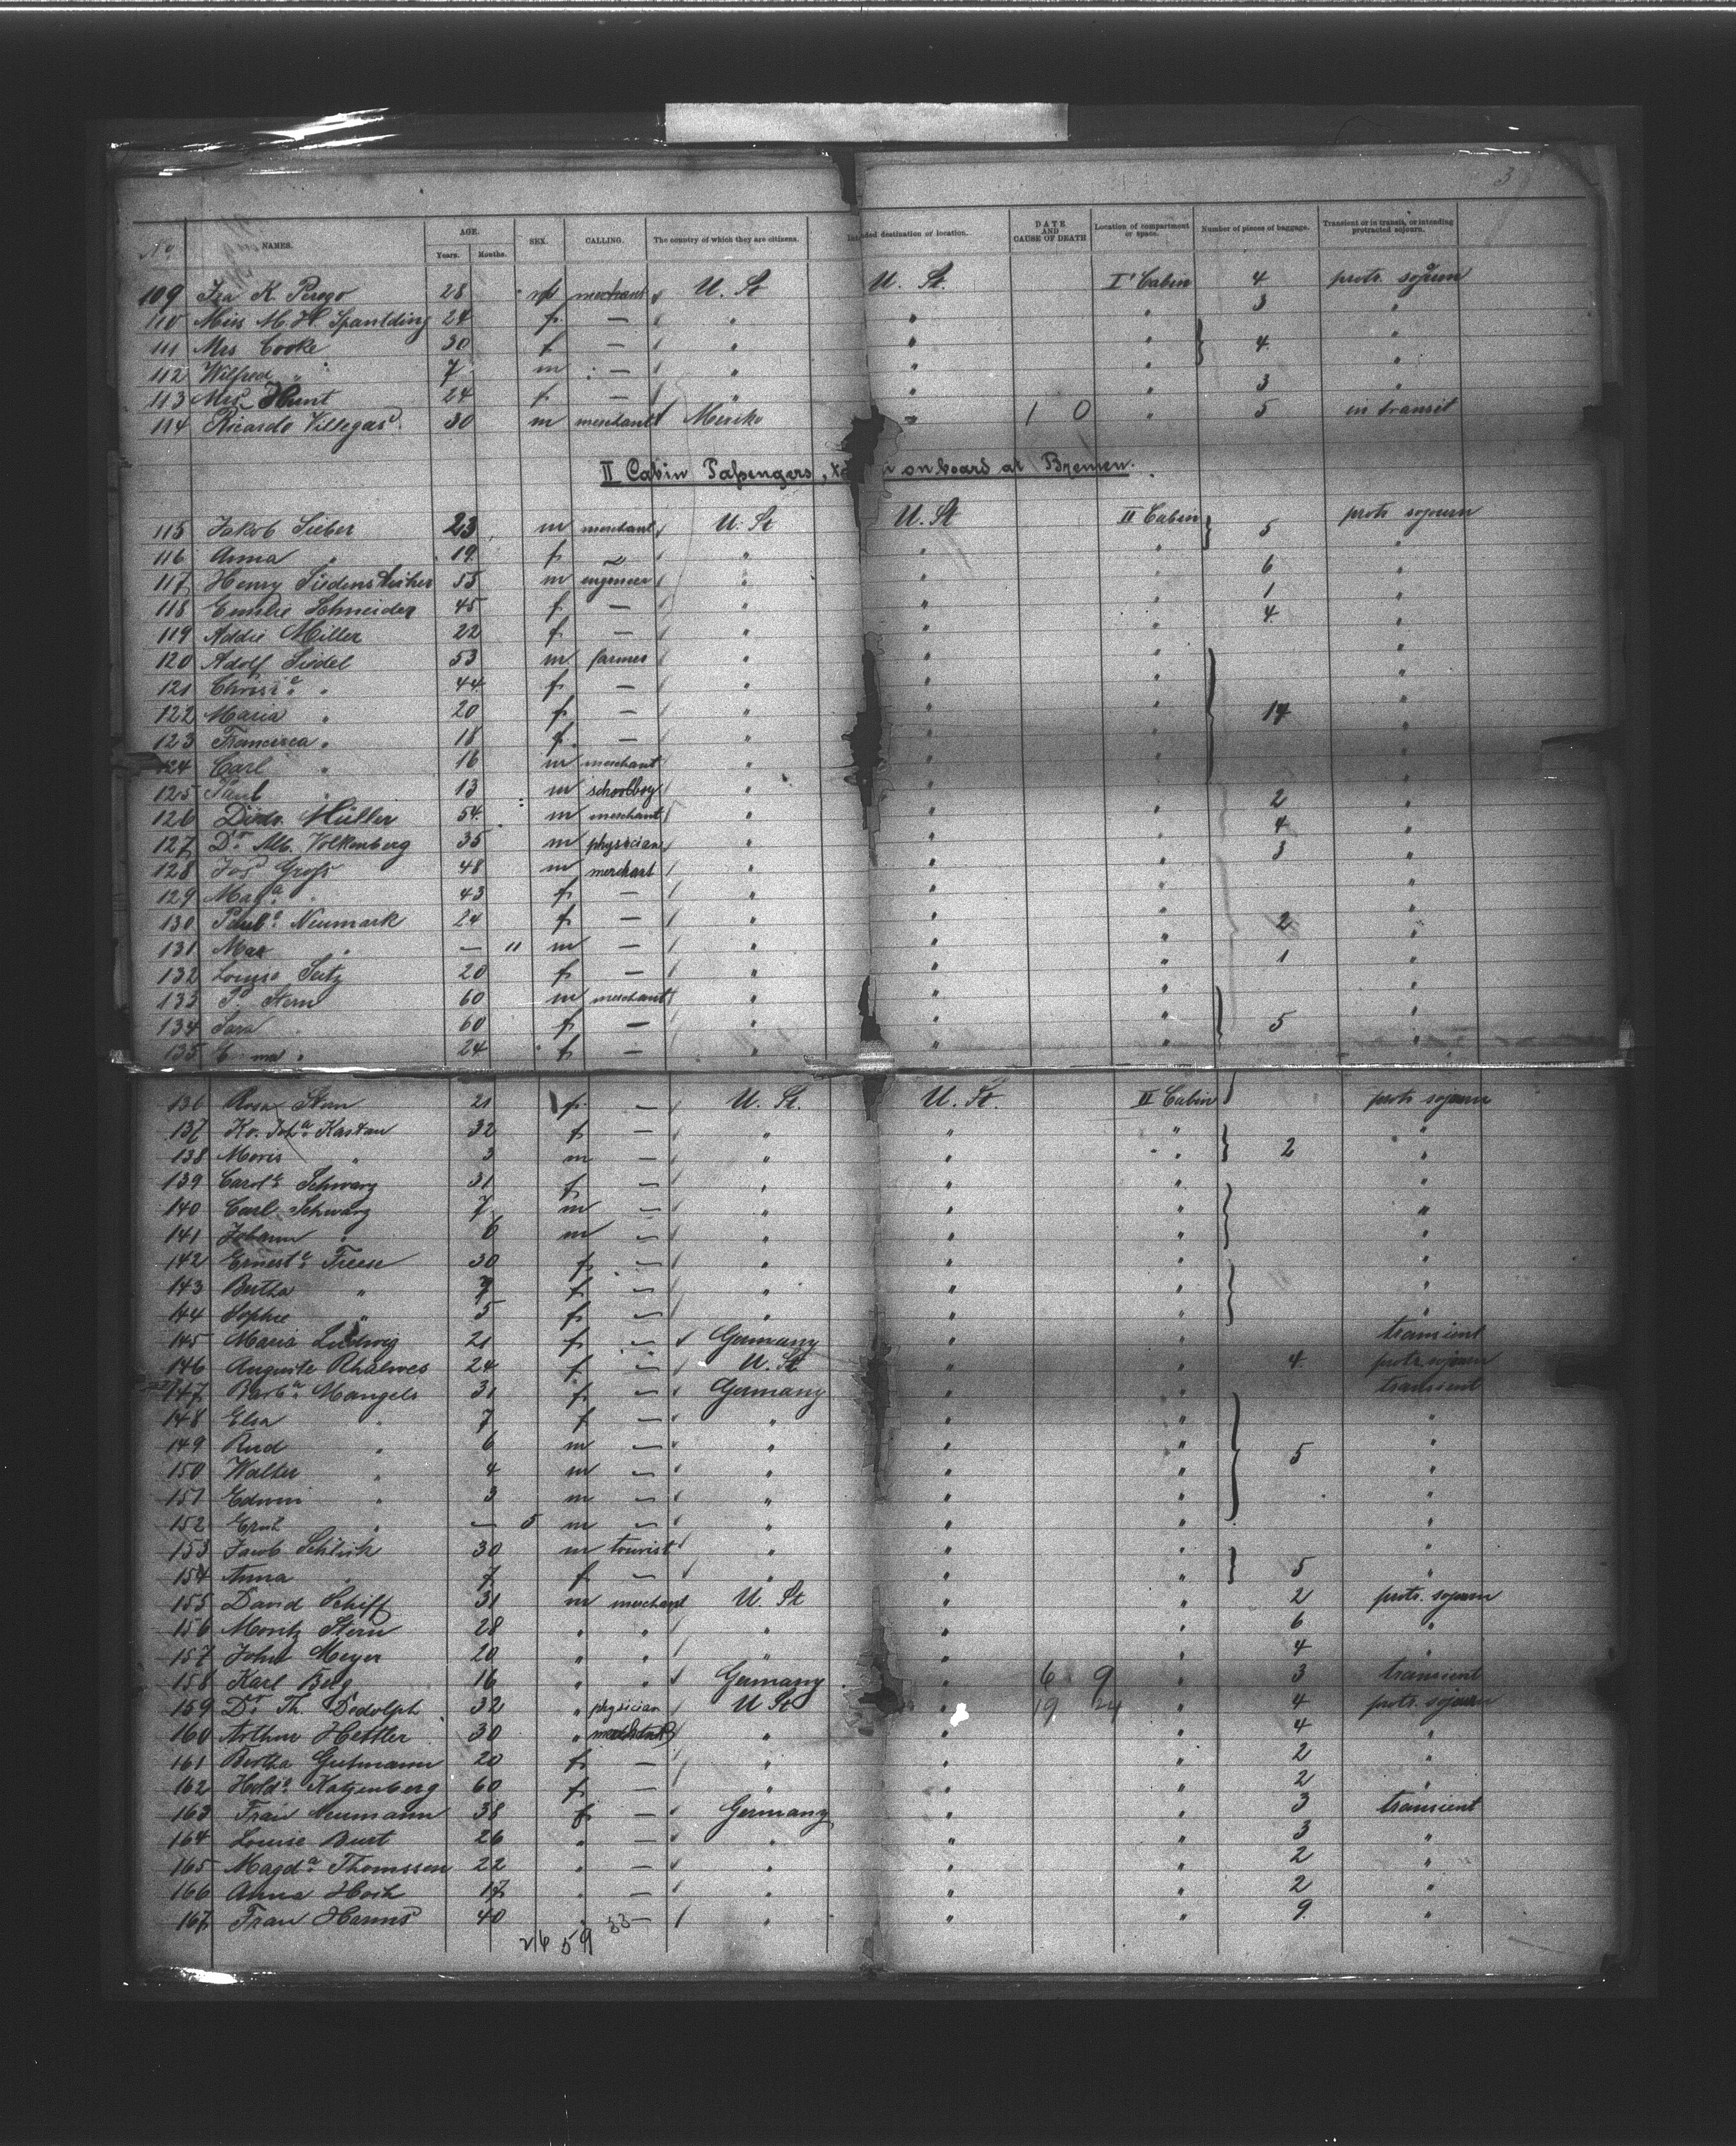 3
No. NAMES. AGE. Years. Months. SEX. CALLING. The country of which they are citizens. Intended destination or location. DATE AND CAUSE OF DEATH Location of compartment or space. Number of pieces of baggage. Transient or in transit, or intending protracted sojourn.
109 Ira K. Perego 28 merchant U. St U. St. I' Cabin 4 protr. sojourn
110 Miss M. H. Spaulding 24 f — " " " 3 "
111 Mrs Cooke 30 f — " " " 4 "
112 Wilfred " 7 m — " " " "
113 Mrs Hunt 24 f — " " " 3 "
114 Ricardo Villegas 30 m merchant Mexiko " 1 0 " 5 in transit
II Cabin Passengers, on board at Bremen.
115 Jakob Sieber 23 m merchant U. St U. St II Cabin 5 protr sojourn
116 Anna " 19 f — " " " "
117 Henry Siedensticker 55 m engineer " " " 6 "
118 Emilie Schneider 45 f — " " " 1 "
119 Addie Miller 22 f — " " " 4 "
120 Adolf Siedel 53 m farmer " " " "
121 Christa " 44 f — " " " "
122 Maria " 20 f — " " " 14 "
123 Francisca " 18 f — " " " "
124 Carl " 16 m merchant " " " "
125 Paul " 13 m schoolboy " " "
126 Diedr. Müller 54 m merchant " " " 2 "
127 Dr Alb. Volkenberg 35 m physician " " " 4 "
128 Jos Gross 48 m merchant " " " 3 "
129 Maga " 43 f — " " " "
130 Paula Neumark 24 f — " " " 2 "
131 Max " — 11 m — " " " "
132 Louise Seitz 20 f — " " " 1 "
133 S. Stern 60 m merchant " " " "
134 Sara " 60 f — " " " 5 "
135 Emma " 24 f — " " " "
136 Rosa Stern 21 f — U. St. U. St. II Cabin protr sojourn
137 Joha Kastan 32 f — " " " "
138 Moris " 3 m — " " " 2 "
139 Carole Schwarz 31 f — " " "
140 Carl Schwarz 7 m — " " "
141 Johann " 6 m — " " "
142 Erneste Freese 30 f — " " " "
143 Bertha " 7 f — " " "
144 Sophie " 5 f — " " " "
145 Maria Ludwig 21 f — Germany " " transient
146 Auguste Rhalwes 24 f — U. St " " 4 protr sojourn
147 Barba Mangels 31 f — Germany " " transient
148 Elsa " 7 f — " " " "
149 Rud " 6 m — " " " "
150 Walter " 4 m — " " " 5 "
151 Edwin " 3 m — " " " "
152 Erich " — 5 m — " " " "
153 Jacob Schlick 30 m tourist " " " "
154 Anna " 7 f — " " " 5 "
155 David Schiff 31 m merchant U. St " " 2 protr. sojourn
156 Moritz Stern 28 " " " " " 6 "
157 John Meyer 20 " " " " " 4 "
158 Karl Berg 16 " " Germany " 6 9 " 3 transient
159 Dr Th. Dedolph 32 " physician U St " 19 24 " 4 protr. sojourn
160 Arthur Hettler 30 " " " " 4 "
161 Bertha Gutmann 20 f — " " " 2 "
162 Holda Katzenberg 60 f — " " " 2 "
163 Frau Neumann 38 f — Germany " " 3 transient
164 Louise Burt 26 " — " " " 3 "
165 Magda Thomssen 22 " — " " " 2 "
166 Anna Hoch 17 " — " " " 2 "
167 Frau Harms 40 " — " " " 9 "
26 59 33